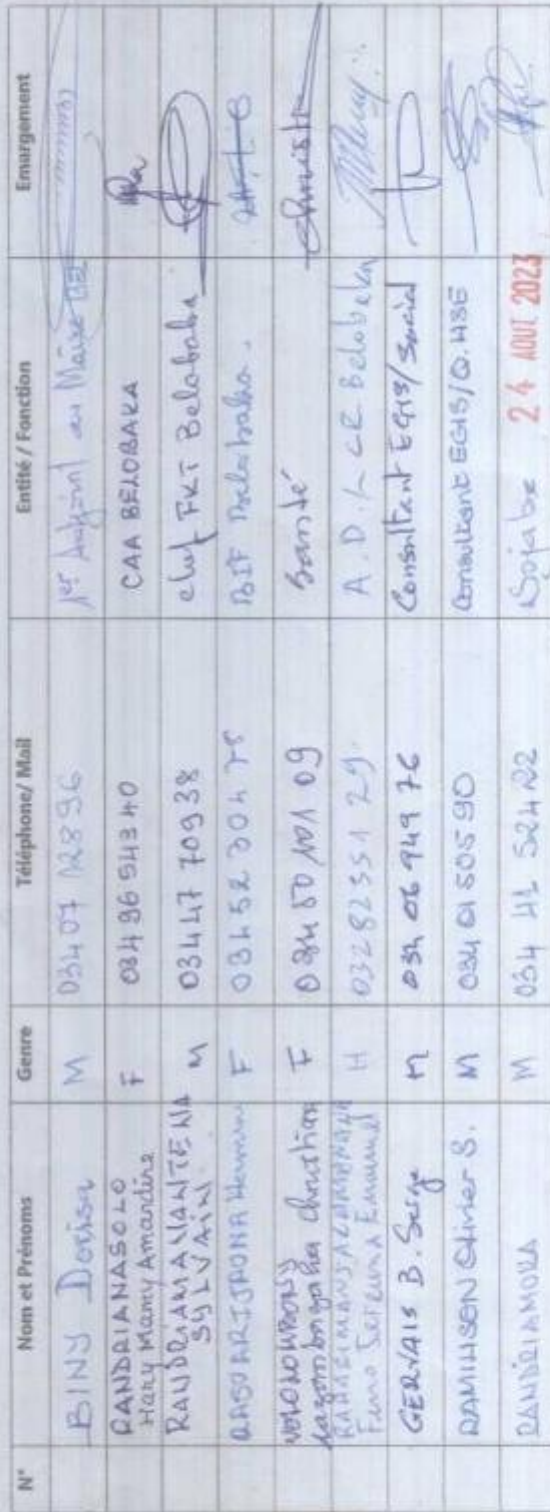 N° Nom et Prénoms Genre Téléphone/ Mail Entité / Fonction Emargement
BINY Dorisa M 034 07 12896 1er Adjoint au Maire BEL
RANDRIANASOLO
Hary Mamy Amandine F 034 96 543 40 CAA BELOBAKA
RANDRIAMAVANTENA
SYLVAIN M 034 47 709 38 chef FKT Belobaka
F 034 52 304 75 BIF Belobaka.
Christian F 034 50 101 09 Santé Christi
Emmanuel H 032 82 351 29 A.D. CR Belobaka
GERVAIS B. Serge M 034 06 949 76 Consultant EGIS/Social
RAMILISON Olivier S. M 034 01 505 90 Consultant EGIS/Q.HSE
RANDRIAMORA M 034 41 524 22 Sojabe
24 AOUT 2023